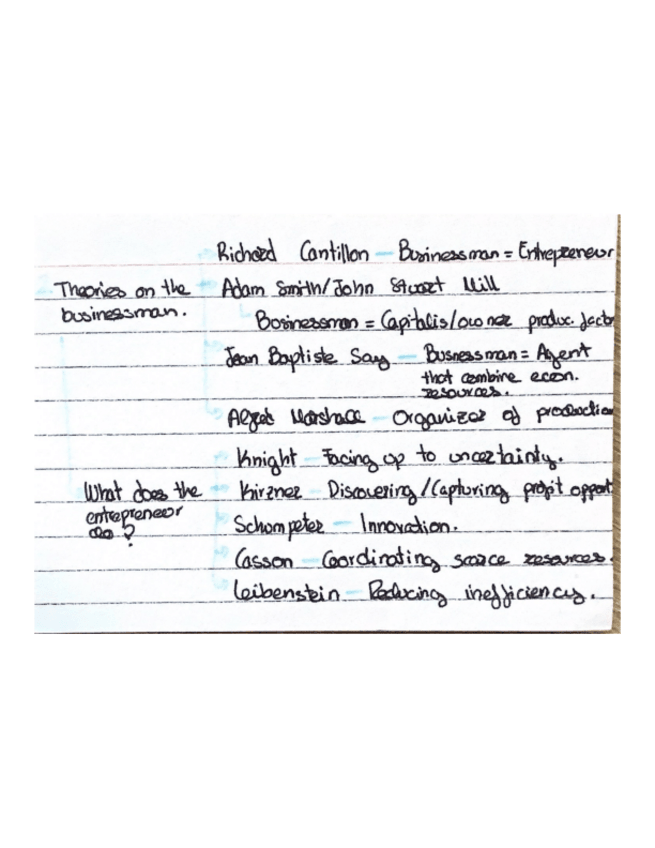 Richard Cantillon – Businessman = Entrepreneur
Theories on the businessman.
Adam Smith/John Stuart Mill
Businessman = Capitalis/owner produc. factor
Jean Baptiste Say – Busnessman = Agent
that combine econ.
resources.
Alfret Marshace – Organizer of production
Knight – Facing up to uncertainty.
What does the entrepreneur do?
Kirzner – Discovering/Capturing profit opport
Schumpeter – Innovation.
Casson – Coordinating scarce resources.
Leibenstein – Reducing inefficiency.